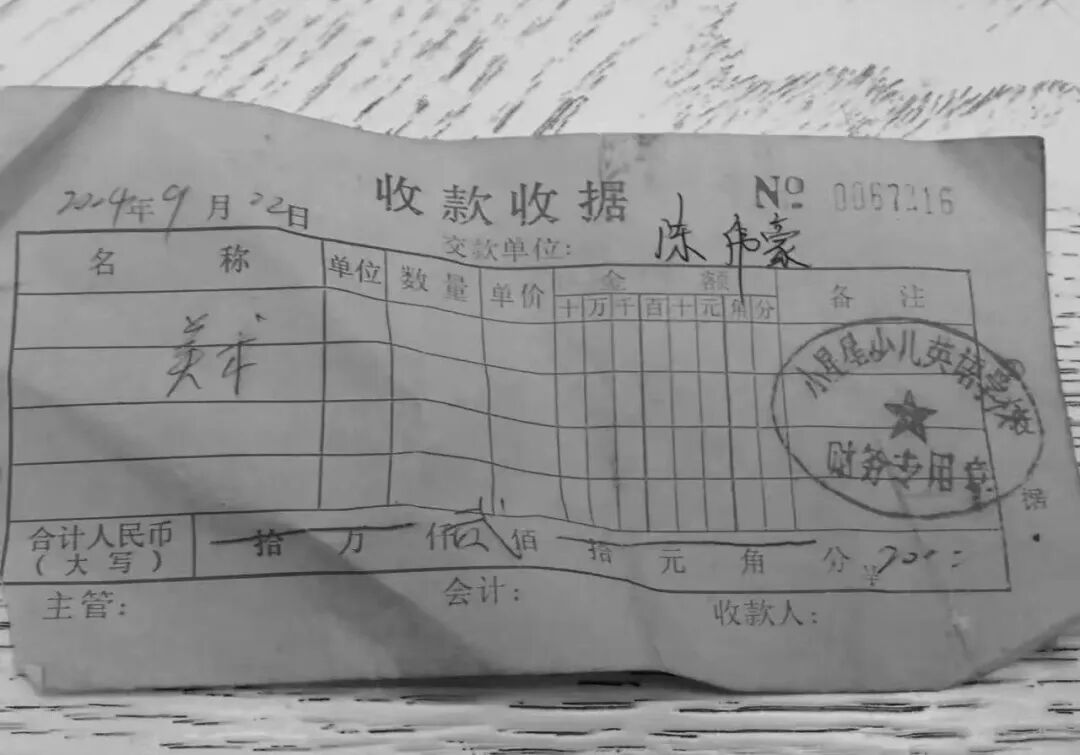 收款收据 № 0067216
2024年9月22日
交款单位: 陈伟豪
名称 单位 数量 单价 金额 备注
十 万 千 百 十 元 角 分
美术
小星星少儿英语学校
财务专用章
据
合计人民币 拾 万 仟 佰 拾 元 角 分 ¥
(大写)
主管: 会计: 收款人: